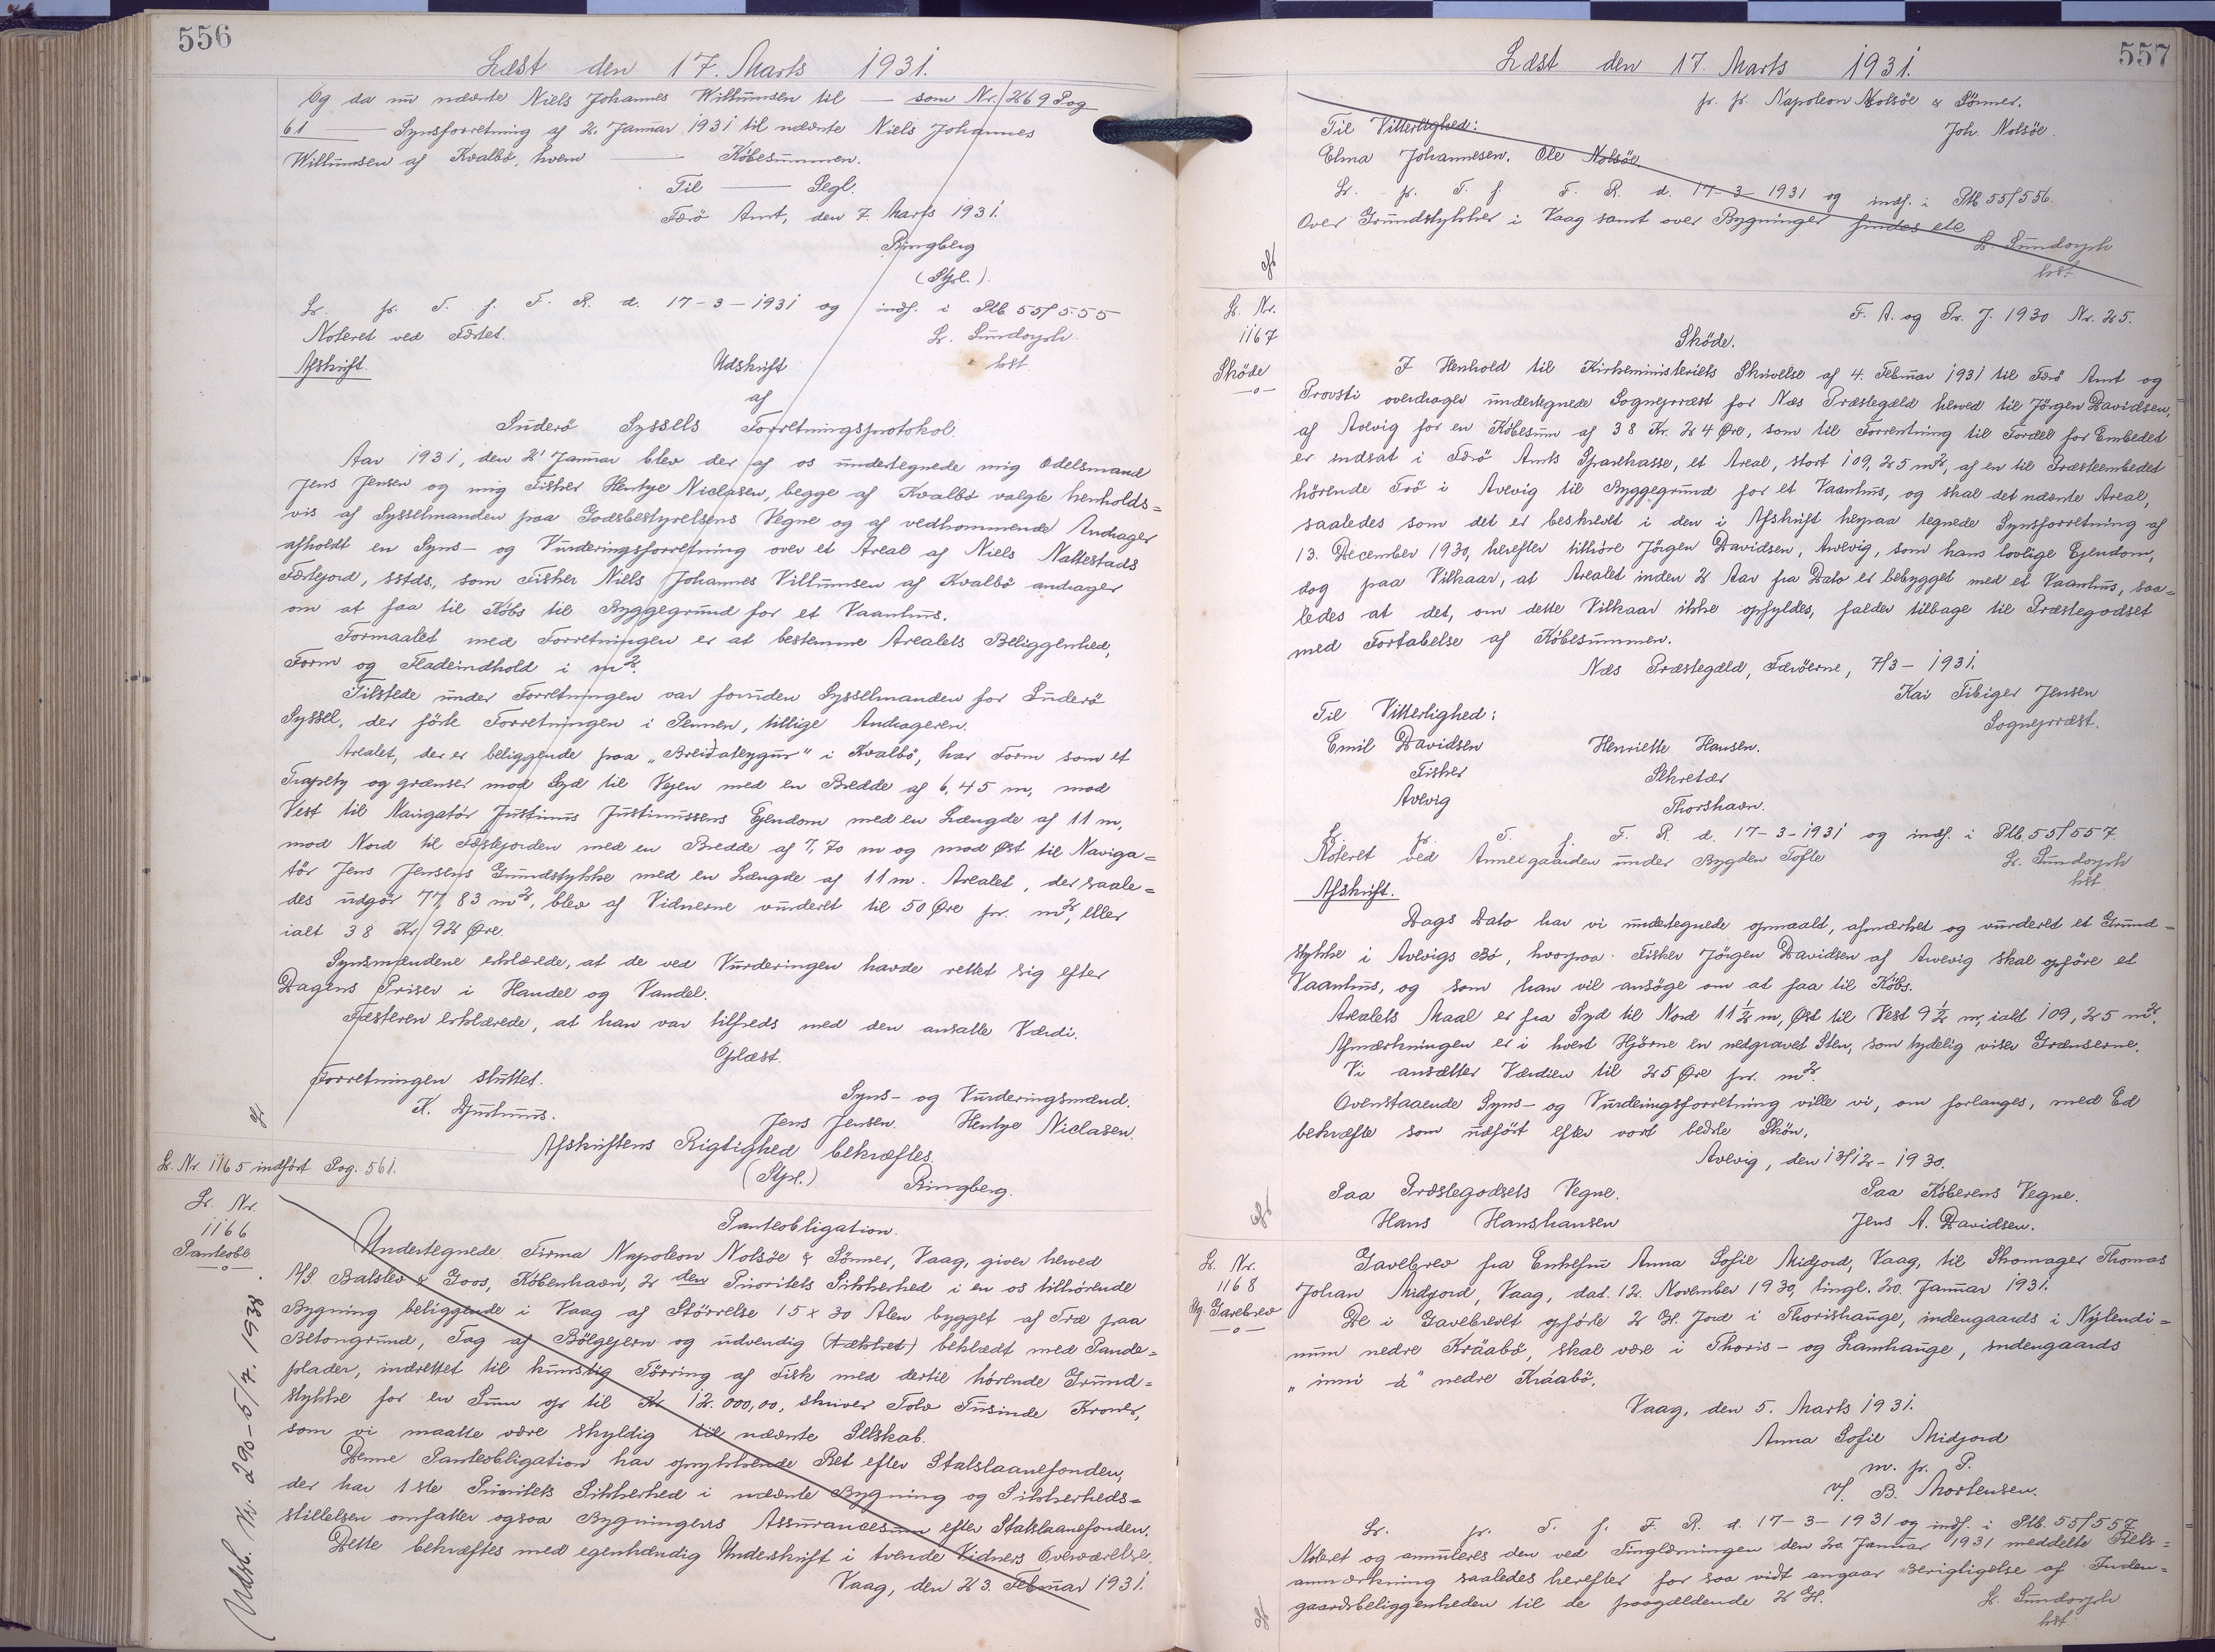 556
Læst den 17. Marts 1931.
Og da nu nævnte Niels Johannes Willumsen til — som Nr. 269 Pag
61 — Synsforretning af 2. Januar 1931 til nævnte Niels Johannes
Willumsen af Kvalbø, hvem — Købesummen.
Til — Segl.
Færø Amt, den 7. Marts 1931.
Ringberg
(Stpl.)
L. pr. T. f. F. R. d. 17-3-1931 og indf. i Ptb 55/555
Noteret ved Fæstet.
L. Sundorph
kst
Afskrift.
Udskrift
af
Suderø Syssels Forretningsprotokol.
Aar 1931, den 2' Januar blev der af os undertegnede mig Odelsmand
Jens Jensen og mig Fisker Hentye Niclasen, begge af Kvalbø valgte henholds=
vis af Sysselmanden paa Godsbestyrelsens Vegne og af vedkommende Andrager
afholdt en Syns- og Vurderingsforretning over et Areal af Niels Nattestads
Fæstejord, sstds., som Fisker Niels Johannes Villumsen af Kvalbø andrager
om at faa til Købs til Byggegrund for et Vaanhus.
Formaalet med Forretningen er at bestemme Arealets Beliggenhed,
Form og Fladeindhold i m2.
Tilstede under Forretningen var foruden Sysselmanden for Suderø
Syssel, der førte Forretningen i Pennen, tillige Andrageren.
Arealet, der er beliggende paa „Breiðateygur" i Kvalbø, har Form som et
Trapetz og grænser mod Syd til Vejen med en Bredde af 6,45 m, mod
Vest til Navigatør Justinus Justinussens Ejendom med en Længde af 11 m,
mod Nord til Fæstejorden med en Bredde af 7,70 m og mod Øst til Naviga=
tør Jens Jensens Grundstykke med en Længde af 11 m. Arealet, der saale=
des udgør 77,83 m2, blev af Vidnerne vurderet til 50 Øre pr. m2, eller
ialt 38 Kr. 92 Øre.
Synsmændene erklærede, at de ved Vurderingen havde rettet sig efter
Dagens Priser i Handel og Vandel.
Fæsteren erklærede, at han var tilfreds med den ansatte Værdi.
Oplæst.
Forretningen sluttet.
Syns- og Vurderingsmænd.
K. Djurhuus.
Jens Jensen. Hentye Niclasen.
Afskriftens Rigtighed bekræftes.
(Stpl.) Ringberg.
L. Nr. 1165 indført Pag. 561.
L. Nr.
1166
Panteobl.
Udsl. Nr. 290-5/7. 1938.
Panteobligation.
Undertegnede Firma Napoleon Nolsøe & Sønner, Vaag, giver herved
A/S. Balslev & Goos, København, 2 den Prioritets Sikkerhed i en os tilhørende
Bygning beliggende i Vaag af Størrelse 15 x 30 Alen bygget af Træ paa
Betongrund, Tag af Bølgejern og udvendig (tækket) beklædt med Pande=
plader, indrettet til kunstig Tørring af Fisk med dertil hørende Grund=
stykke for en Sum op til Kr 12.000,00, skriver Tolv Tusinde Kroner,
som vi maatte være skyldig til nævnte Selskab.
Denne Panteobligation har oprykkende Ret efter Statslaanefonden,
der har 1ste Prioritets Sikkerhed i nævnte Bygning og Sikkerheds=
stillelsen omfatter ogsaa Bygningens Assurancesum efter Statslaanefonden.
Dette bekræftes med egenhændig Underskrift i tvende Vidners Overværelse.
Vaag, den 23. Februar 1931.
557
Læst den 17. Marts 1931.
pr. pr. Napoleon Nolsøe & Sønner.
Til Vitterlighed:
Joh. Nolsøe.
Elma Johannesen. Ole Nolsøe.
L. pr. T. f. F. R. d. 17-3-1931 og indf. i Ptb 55/556.
Over Grundstykker i Vaag samt over Bygninger findes ete
L. Sundorph
kst.
L. Nr.
1167
Skøde
F. A. og Pr. J. 1930 Nr. 25.
Skøde.
I Henhold til Kirkeministeriets Skrivelse af 4. Februar 1931 til Færø Amt og
Provsti overdrager undertegnede Sognepræst for Næs Præstegæld herved til Jörgen Davidsen,
af Avevig for en Købesum af 38 Kr. 24 Øre, som til Forrentning til Fordel for Embedet
er indsat i Færø Amts Sparekasse, et Areal, stort 109,25 m2, af en til Præsteembedet
hørende Trø i Avevig til Byggegrund for et Vaanhus, og skal det nævnte Areal,
saaledes som det er beskrevet i den i Afskrift herpaa tegnede Synsforretning af
13. December 1930, herefter tilhøre Jörgen Davidsen, Avevig, som hans lovlige Ejendom,
dog paa Vilkaar, at Arealet inden 2 Aar fra Dato er bebygget med et Vaanhus, saa=
ledes at det, om dette Vilkaar ikke opfyldes, falder tilbage til Præstegodset
med Fortabelse af Købesummen.
Næs Præstegæld, Færøerne, 7/3-1931.
Kai Fibiger Jensen
Sognepræst.
Til Vitterlighed:
Emil Davidsen Henriette Hansen.
Fisker Sekretær
Avevig Thorshavn.
L. pr. T. f. F. R. d. 17-3-1931 og indf. i Ptb. 55/557
Noteret ved Annexgaarden under Bygden Tofte
L. Sundorph
kst.
Afskrift.
Dags Dato har vi undertegnede opmaalt, afmærket og vurderet et Grund=
stykke i Avevigs Bø, hvorpaa Fisker Jörgen Davidsen af Avevig skal opføre et
Vaanhus, og som han vil ansøge om at faa til Købs.
Arealets Maal er fra Syd til Nord 11 1/2 m, Øst til Vest 9 1/2 m, ialt 109,25 m2.
Afmærkningen er i hvert Hjørne en nedgravet Sten, som tydelig viser Grænserne.
Vi ansætter Værdien til 25 Øre pr. m2.
Ovenstaaende Syns- og Vurderingsforretning ville vi, om forlanges, med Ed
bekræfte som udført efter vort bedste Skøn,
Avevig, den 13/12-1930.
Paa Præstegodsets Vegne. Paa Køberens Vegne.
Hans Hanshansen Jens A. Davidsen.
L. Nr.
1168
Gavebrev
Gavebrev fra Enkefru Anna Sofie Midjord, Vaag, til Skomager Thomas
Johan Midjord, Vaag, dad. 12. November 1930, tingl. 20. Januar 1931.
De i Gavebrevet opførte 2 Gl. Jord i Thorishauge, indengaards i Nylendi=
num nedre Kráabø, skal være i Thoris- og Lamhauge, indengaards
„inni á" nedre Kráabø.
Vaag, den 5. Marts 1931.
Anna Sofie Midjord
m. p. P.
v/. B. Mortensen.
L. pr. T. f. F. R. d. 17-3-1931 og indf. i Ptb. 55/557
Noteret og annuleres den ved Tinglæsningen den 20. Januar 1931 meddelte Rets=
anmærkning saaledes herefter for saa vidt angaar Berigtigelse af Inden=
gaardsbeliggenheden til de paagældende 2 Gl.
L. Sundorph
kst.